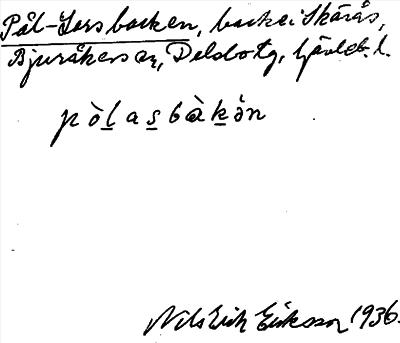 Pål-Larsbacken, backe i Skärås,
Bjuråkers sn, Delsbo tg, Gävleb. l.
pò̀l̲as̲bàk̲ǝ̀n
Nils Erik Eriksson 1936.